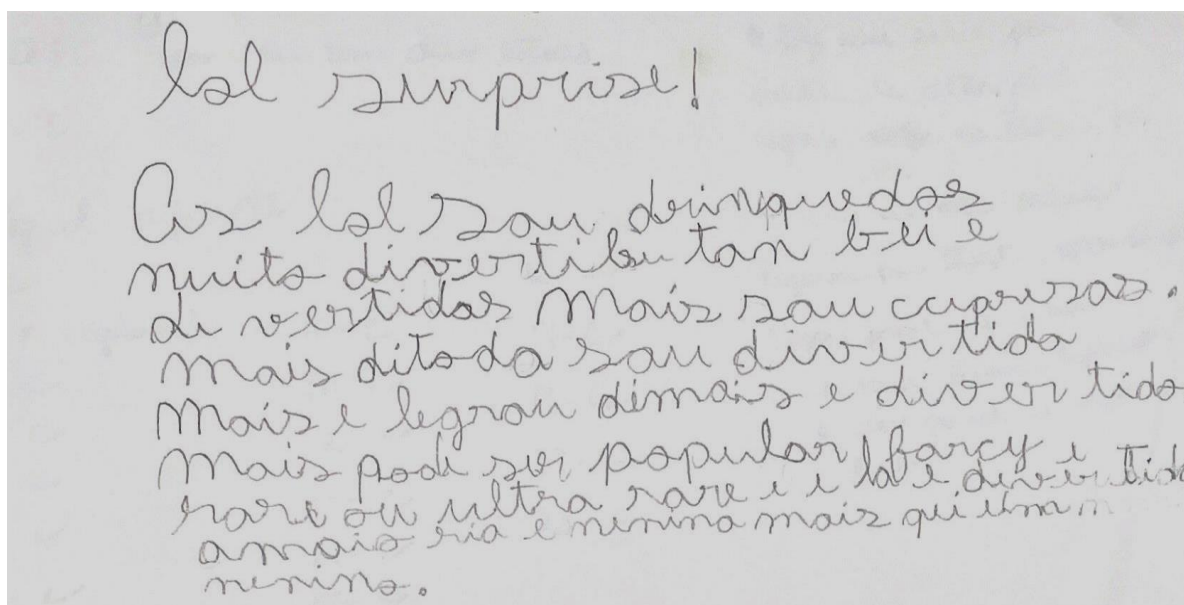 lol surprise!
As lol sau drinquedos
muito divertibu tan bei e
di vertidas mais sau cuarusas.
mais ditoda sau divirtida
mais e legrau dimais e divertido
mais podi ser popular farcy i
rare ou ultra rare i i la i divirtida
amais ria e menina mais qui
menino.